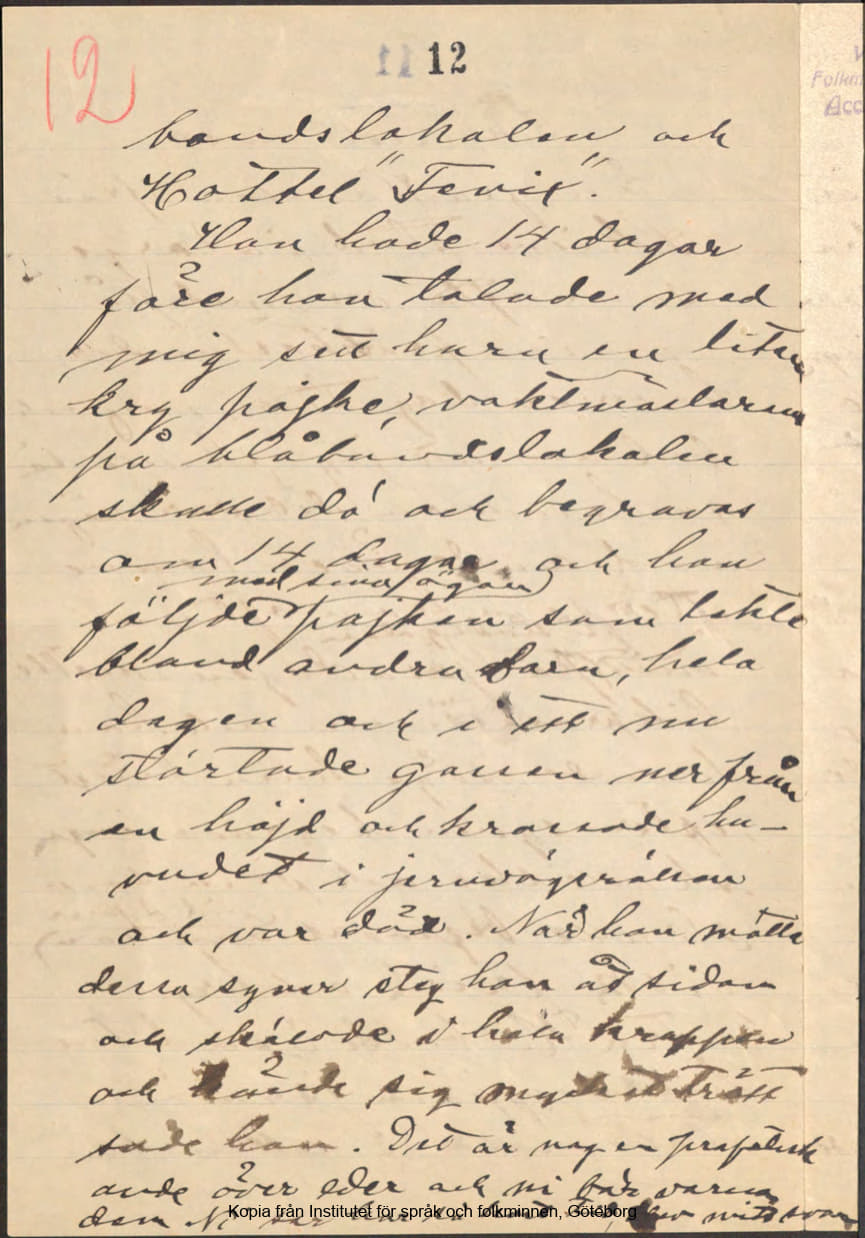 12
11 12
bandslokalen och
Hottel "Fenix".
Han hade 14 dagar
före han talade med
mig sett huru en liten
kry pojke, vaktmästarens
på blåbandslokalen
skulle dö och begravas
om 14 dagar och han
med sina ögon
följde pojken som lekte
bland andra barn, hela
dagen och i ett nu
störtade gossen ner från
en höjd och krossade hu-
vudet i jernvägsrälsen
och var död. När han mötte
dessa syner steg han åt sidan
och skälvde i hela kroppen
och kände sig mycket trött
sade han. Det är nog en profetisk
ande över eder och ni bör varna
dem Ni ser mitt svar
Kopia från Institutet för språk och folkminnen, Göteborg
Folkm
Acc